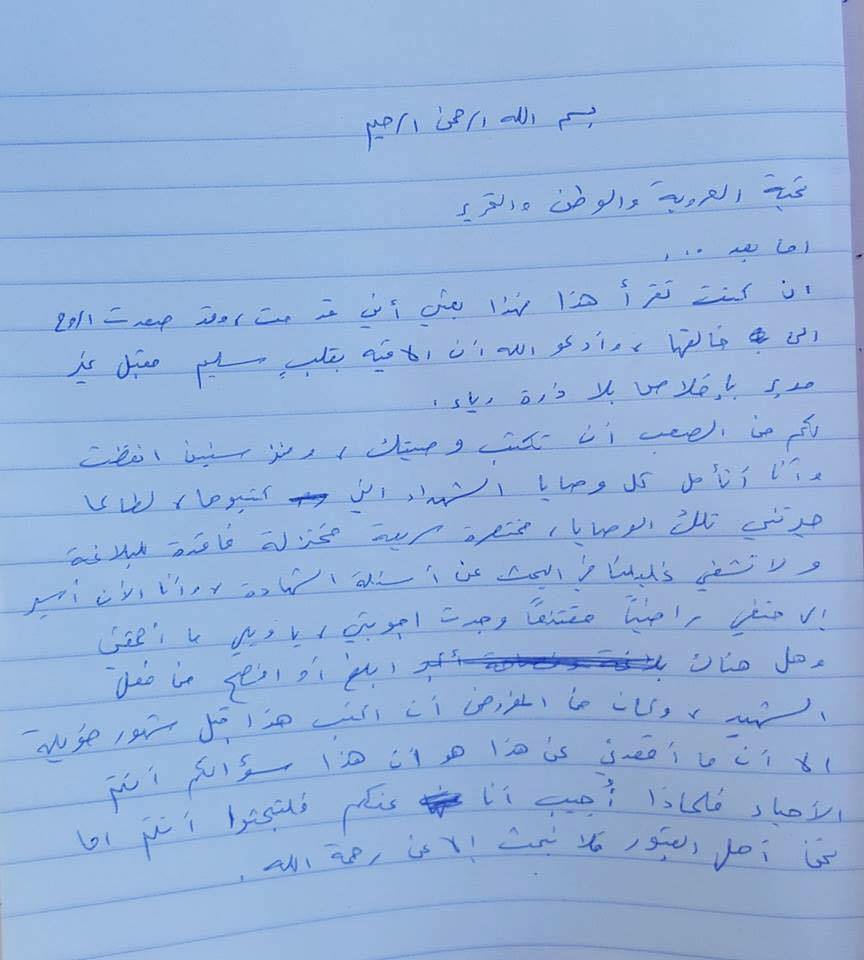 بسم الله الرحمن الرحيم
تحية العروبة والوطن والتحرير
اما بعد ...
ان كنت تقرأ هذا فهذا يعني أني قد مت، وقد صعدت الروح
الى خالقها، وأدعو الله أن الاقيه بقلبٍ سليم مقبل غير
مدبر بإخلاص بلا ذرة رياء.
لكم من الصعب أن تكتب وصيتك، ومنذ سنين انقضت
وأنا أتأمل كل وصايا الشهداء التي كتبوها، لطالما
حيرتني تلك الوصايا، مختصرة سريعة مختزلة فاقدة للبلاغة
ولا تشفي غليلنا في البحث عن أسئلة الشهادة، وأنا الآن أسير
الى حتفي راضياً مقتنعاً وجدت اجوبتي، يا ويلي ما أحمقني
وهل هناك ابلغ أو افصح من فعل
الشهيد، وكان من المفروض أن اكتب هذا قبل شهور طويلة
الا أن ما أقعدني عن هذا هو أن هذا سؤالكم أنتم
الأحياء فلماذا أُجيب أنا عنكم فلتبحثوا أنتم اما
نحن أهل القبور فلا نبحث إلا عن رحمة الله.